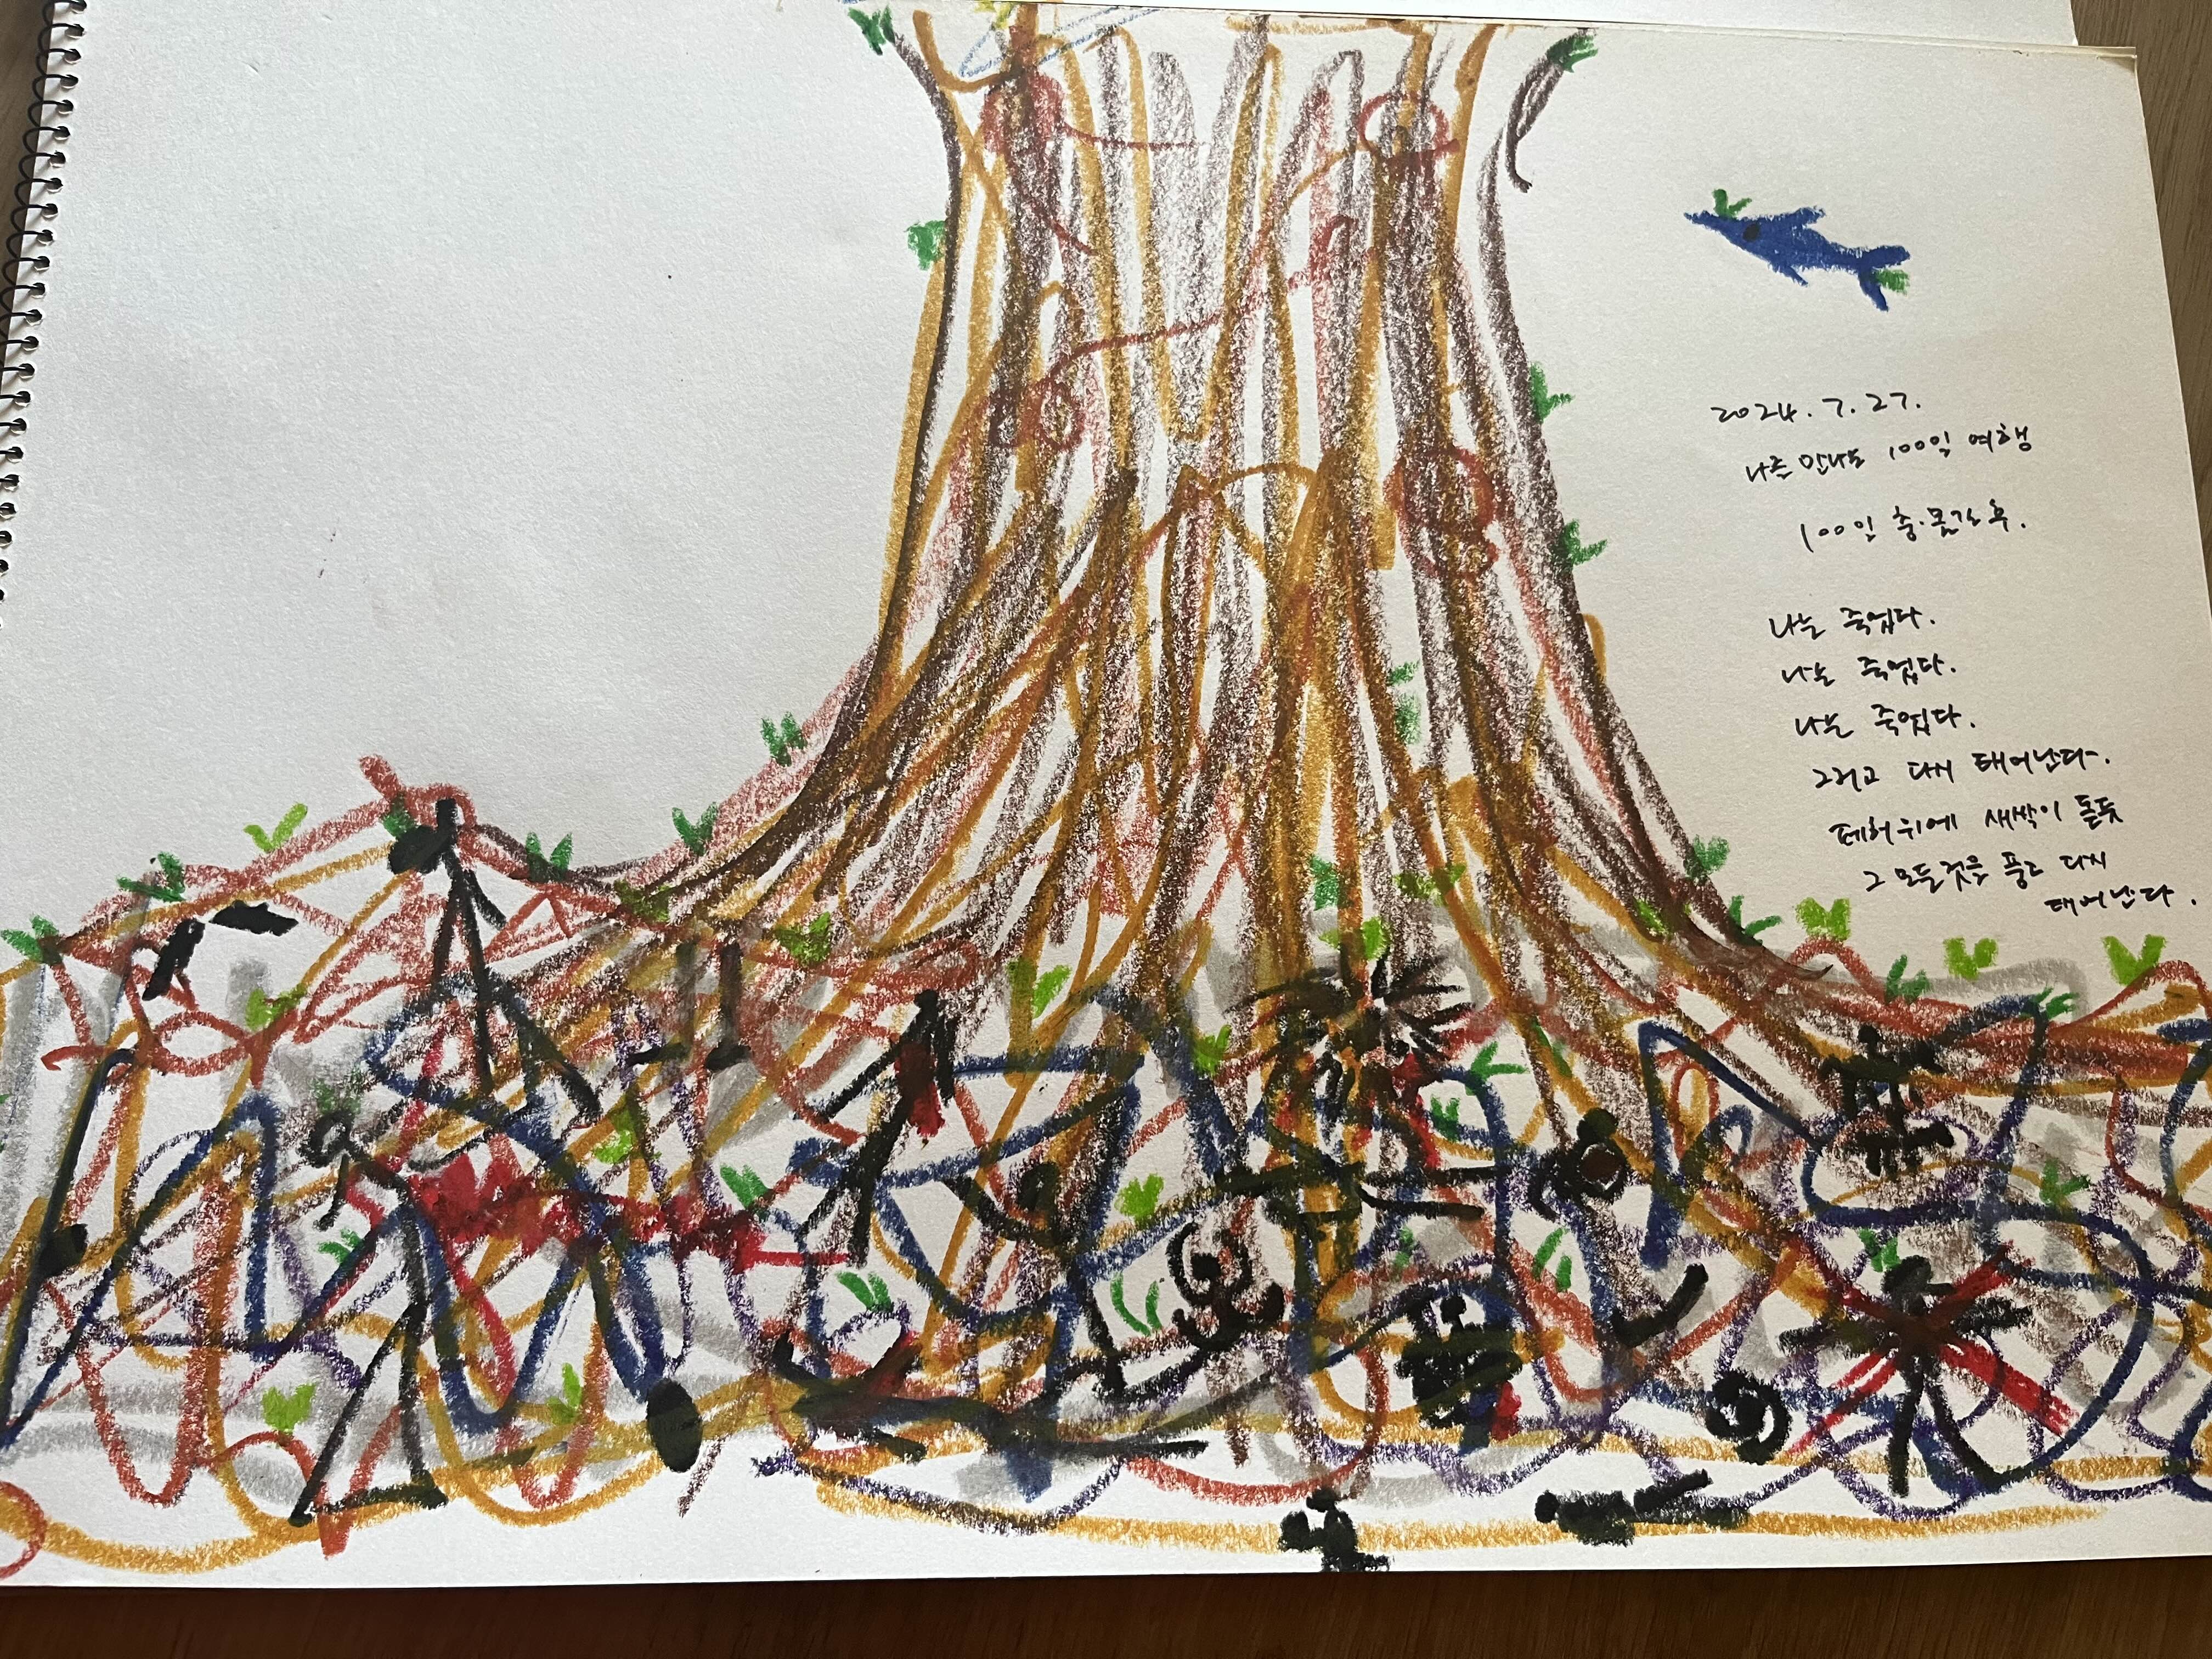 2024. 7. 27.
나를 만나는 100일 여행
100일 춤. 몸감 후.
나는 죽었다.
나는 죽었다.
나는 죽었다.
그리고 다시 태어난다.
폐허위에 새싹이 돋듯
그 모든것을 품고 다시
태어난다.